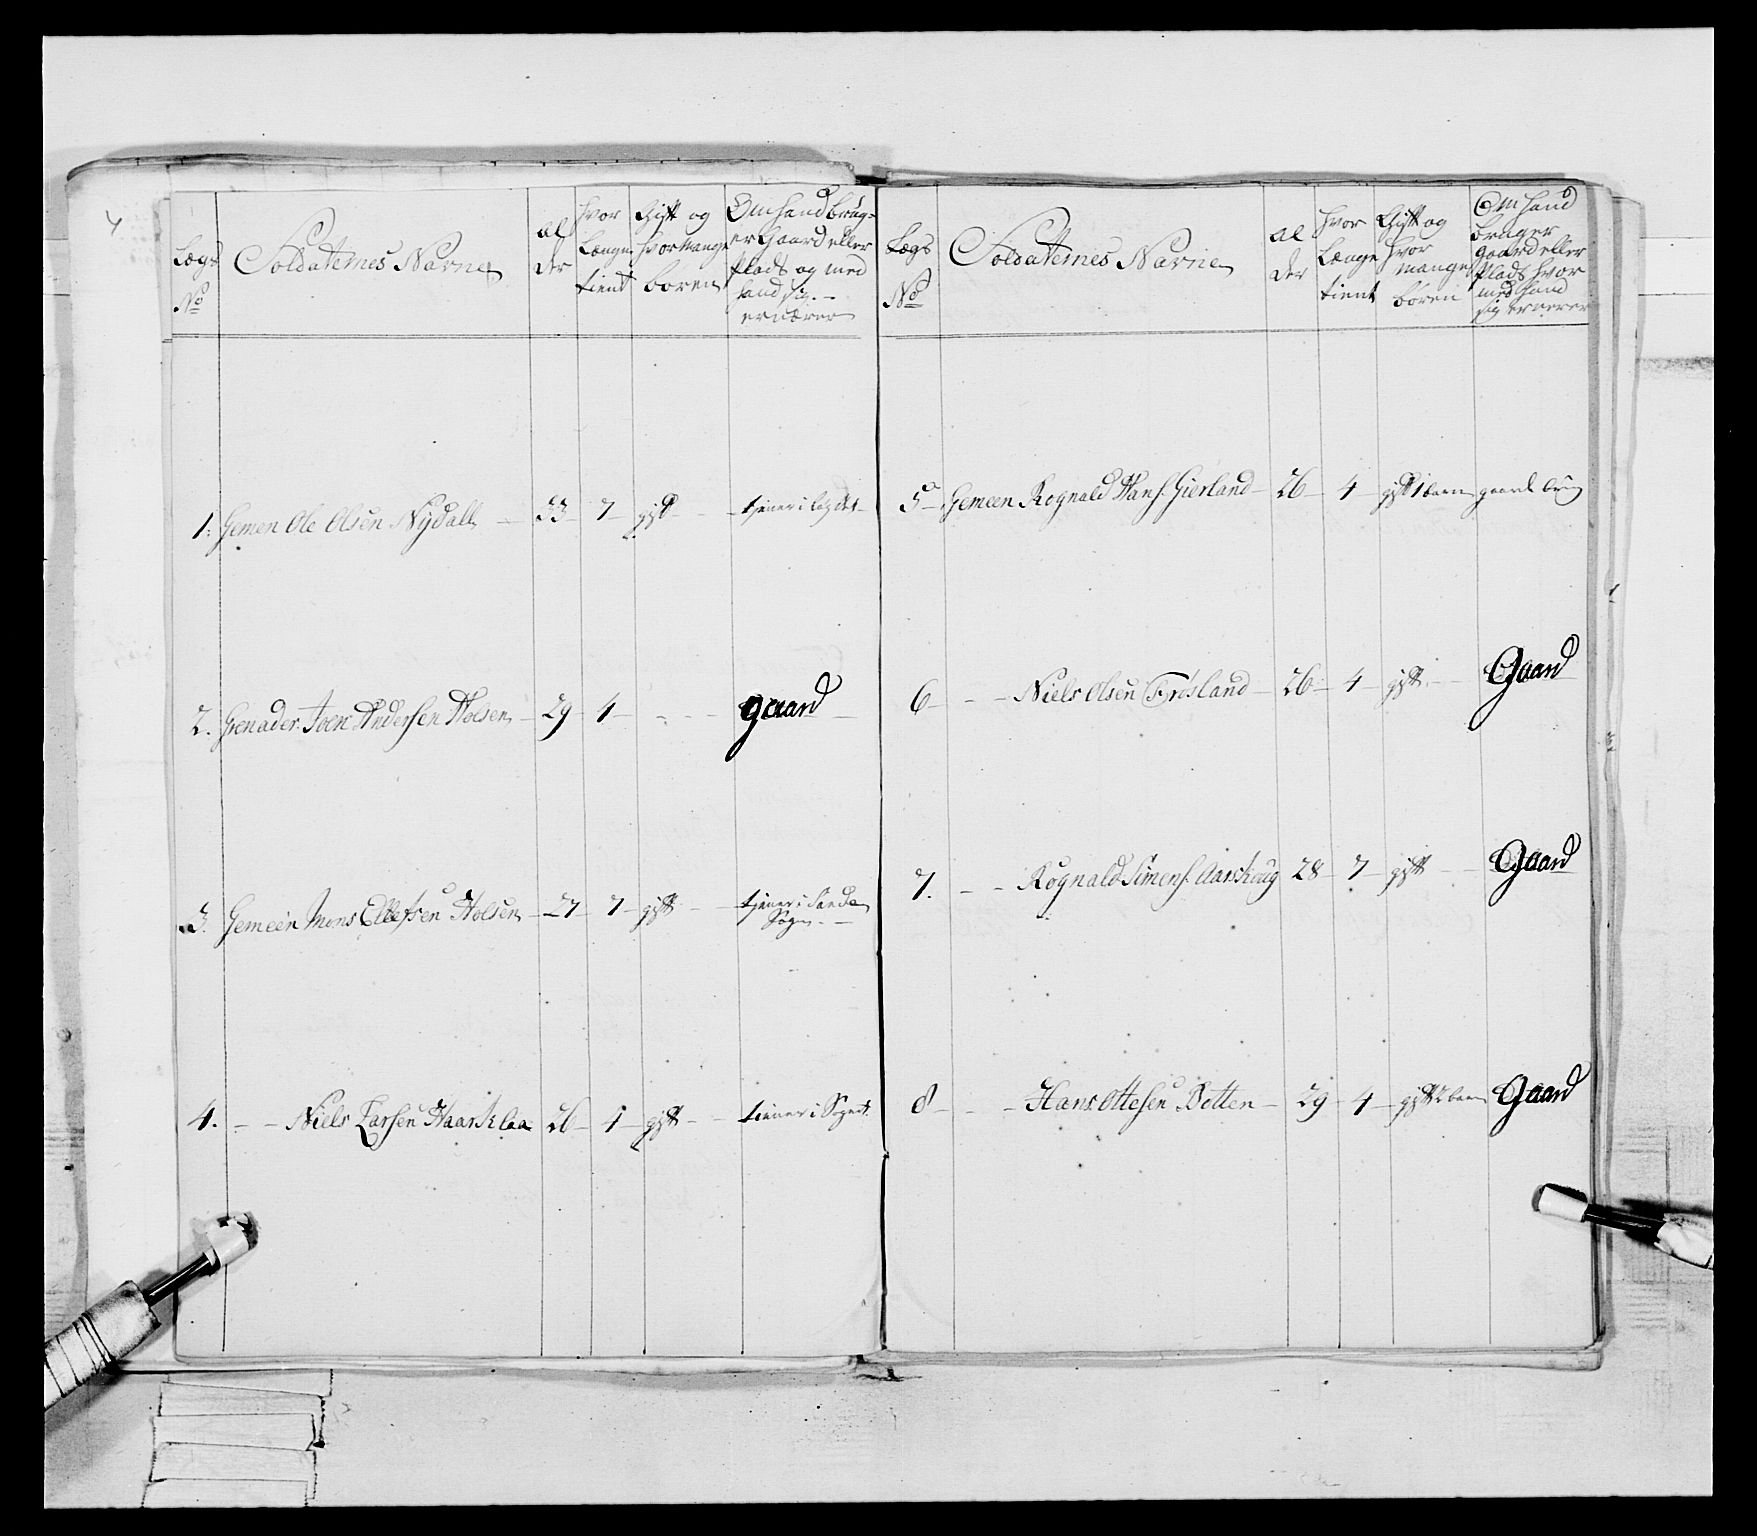 4
Lægs No
Soldaternes Navne
al der
hvor Længe tient
Gift og hvormange boren
Om hand brug- er Gaard eller Plads og med hand sig ernærer
1. Gemen Ole Olsen Nydall 33 7 gift tjener i Lægdet
2. Grenader Joen Andersen Holsen 29 4 gaard
3. Gemeen Mons Ellefsen Holsen 27 7 gift tjener i
Sogn
4. Niels Larsen Haarklaa 26 1 gift tiener i Sognet
Lægs No
Soldaternes Navne
al der
hvor Længe tient
Gift og hvor mange boren
Om hand bruger gaard eller Plads hvor med hand sig ernerer
5 Gemeen Rognald Hans. Gierland 26 4 gift 1 barn gaard brug
6 Niels Olsen Frøsland 26 4 gift Gaard
7. Rognald Simens. Aarskoug 28 7 gift Gaard
8 Hans Ottesen Botten 29 4 gift 2 barn Gaard